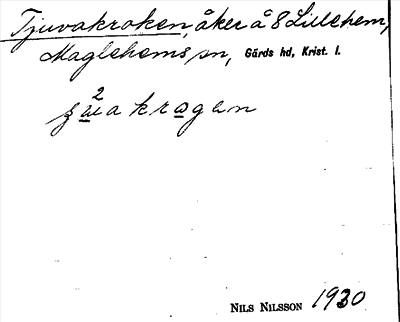 Tjuvakroken, åker å 8 Lillehem,
Maglehems sn, Gärds hd, Krist. l.
2
NILS NILSSON 1930